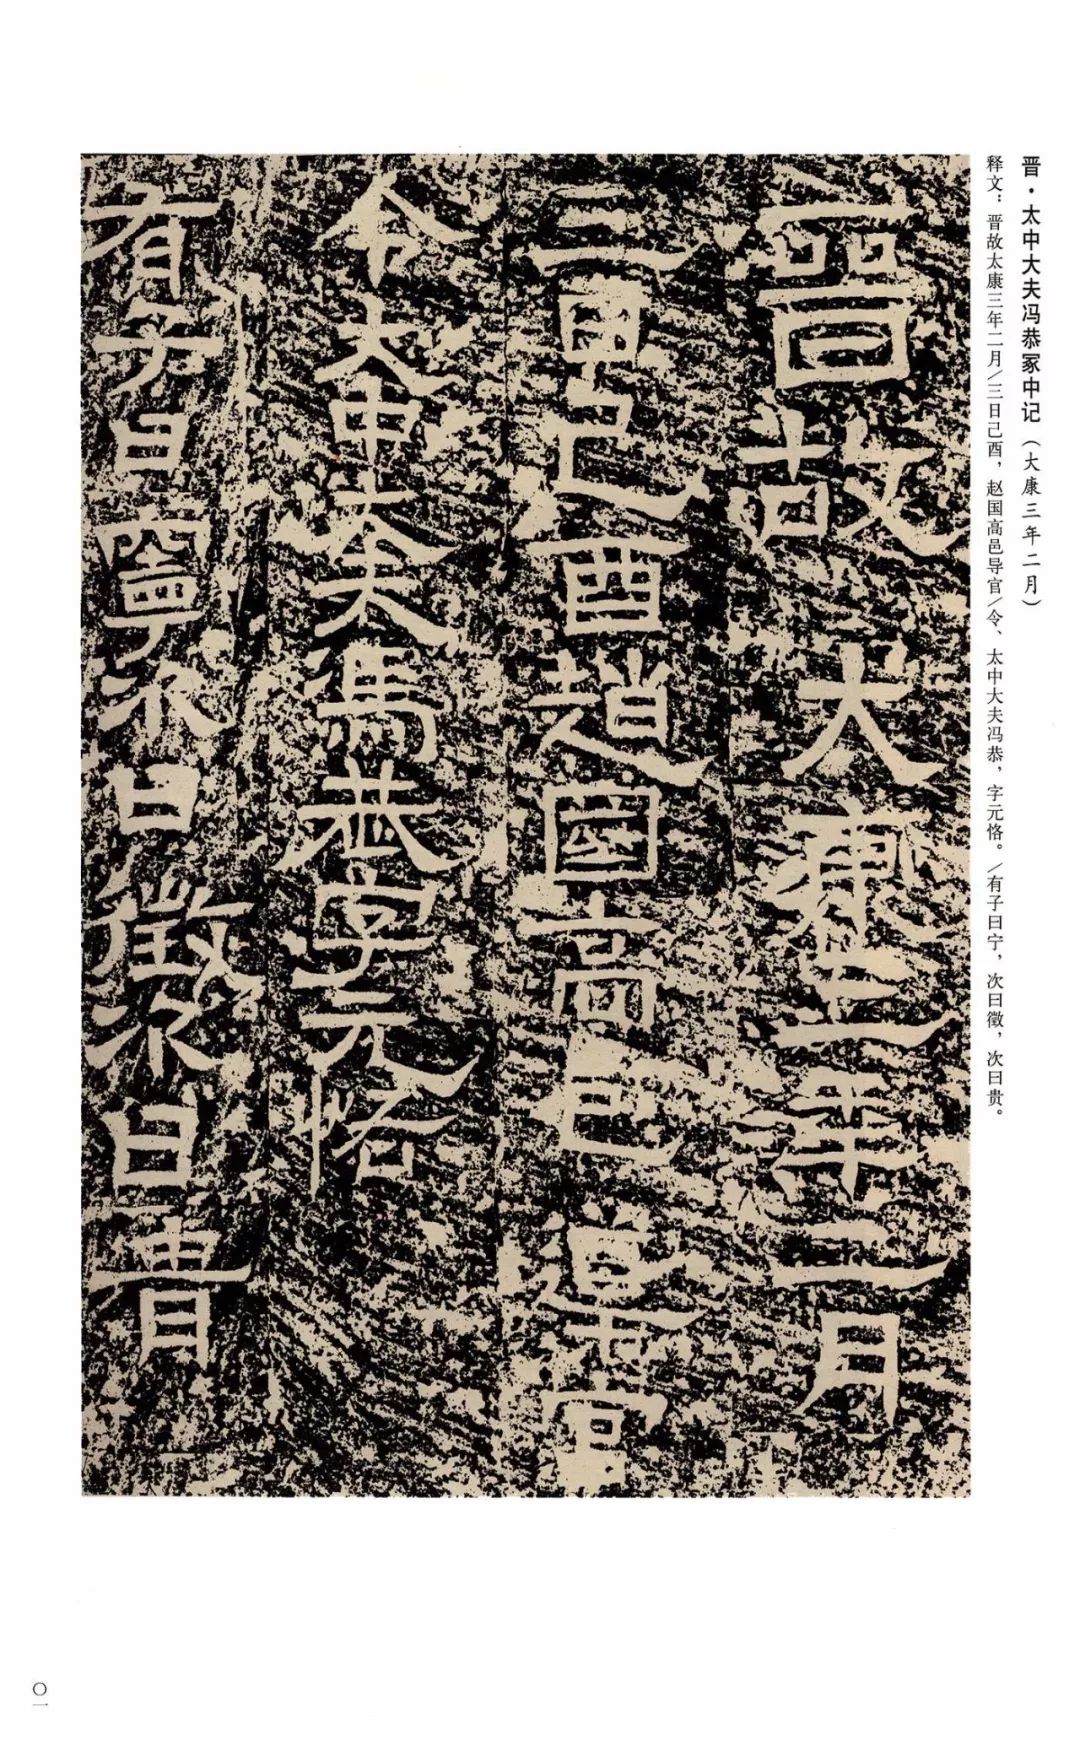 晋·太中大夫冯恭冢中记(大康三年二月)
释文：晋故太康三年二月/三日己酉，赵国高邑导官/令、太中大夫冯恭，字元恪。/有子曰宁，次曰徵，次曰贵。
晉故大康三年二月
三日己酉趙國高邑導官
令大中大夫馮恭字元恪
有子曰寧次曰徵次曰貴
〇一